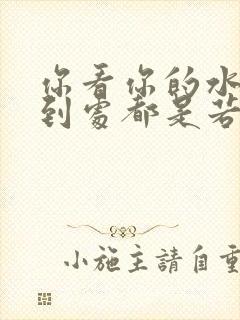 你看你的水
到處都是若
小施主請自重